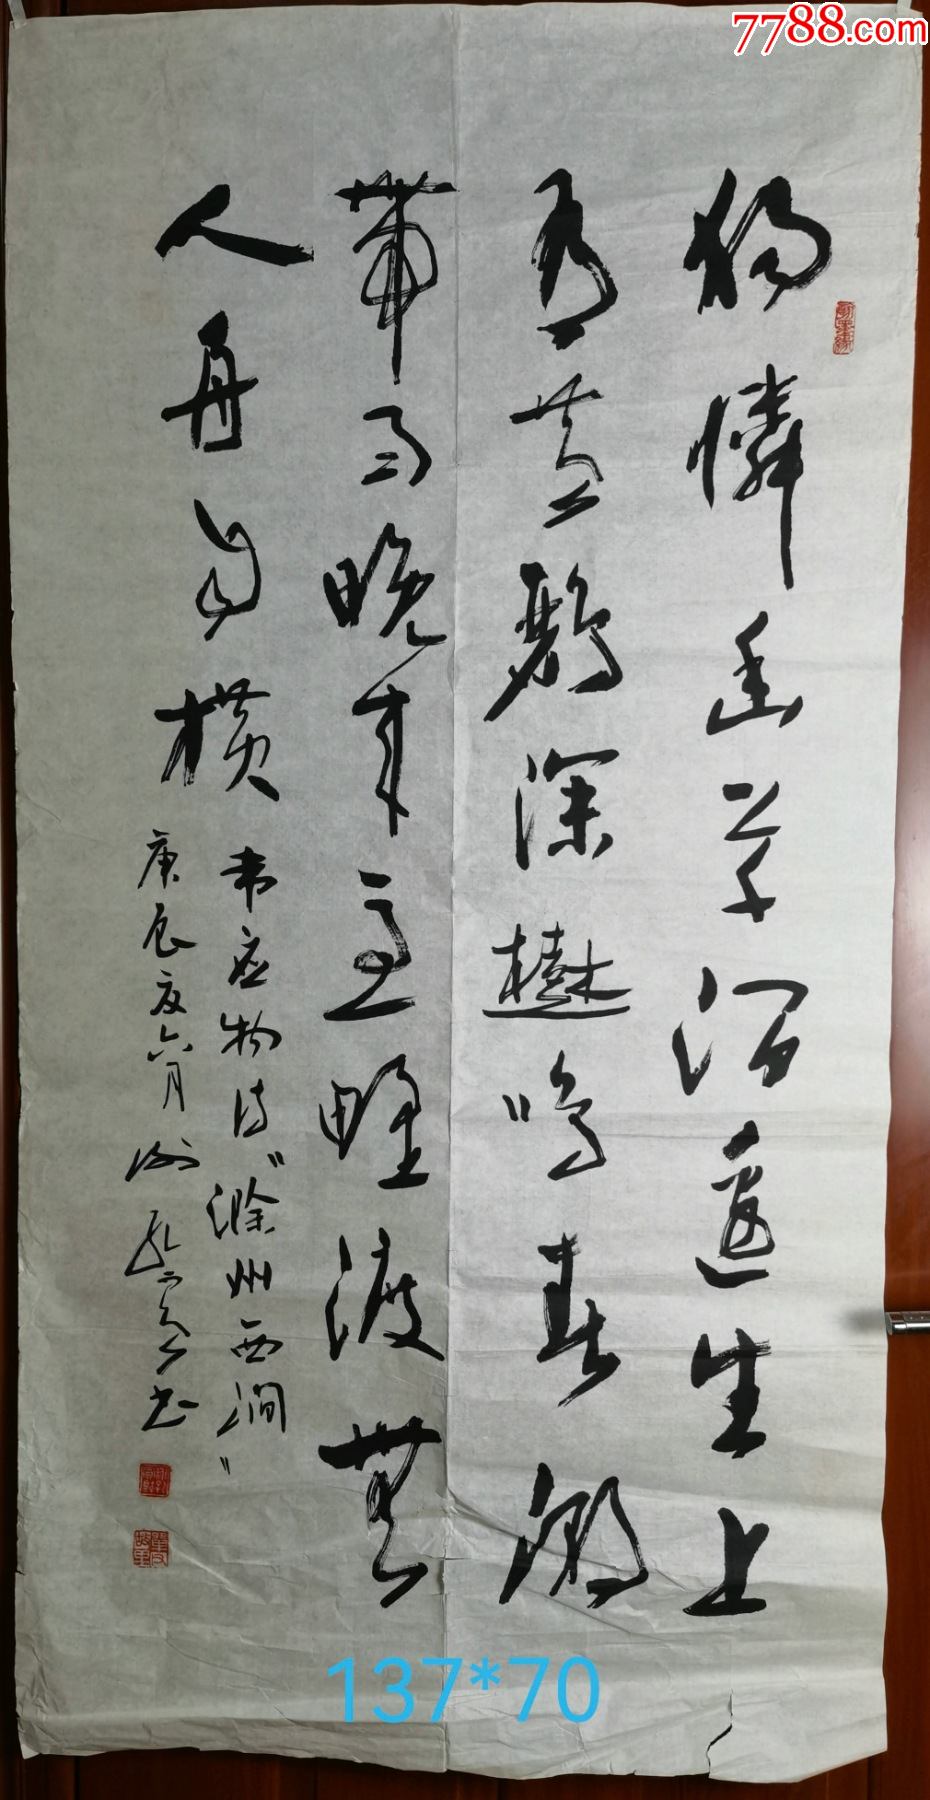 7788.com
獨憐幽草澗邊生上
有黄鸝深樹鳴春潮
帶雨晚来急野渡無
人舟自横
韦应物诗"滁州西涧"
庚辰夏六月书
137*70